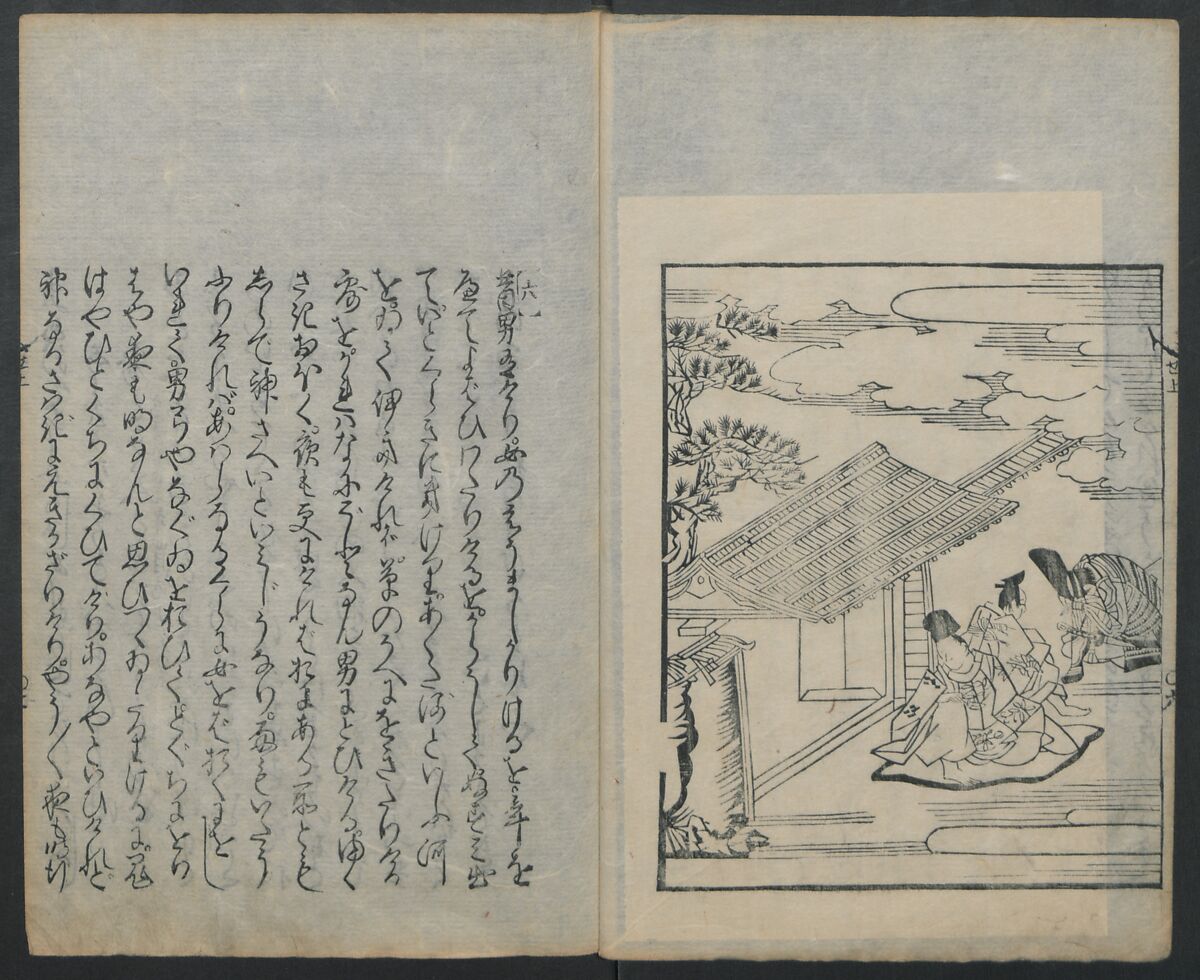 六
昔男有けり。女のえうましかりけるを。年を
へてよばひわたりけるを。からうしてぬすみ出
ていとくらきに来けり。あくた河といふ河
をゐていきければ。草のうへにをきたりける
露をかれはなにぞとなん男にとひける。ゆく
さきおほく。夜も更にければおにある所とも
しらで神さへいといみじうなり。雨もいたう
ふりければ。あばらなるくらに女をばおくにをし
いれて。男弓やなぐゐをおひてとぐちにをり
はや夜も明なんと思ひつゝゐたりけるに。鬼
はやひとくちにくひてけり。あなやといひけれど。
神なるさはぎにえきかざりけり。やう〳〵夜も明行